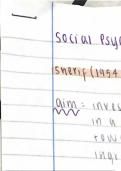 social Psy
sherif (1954
aim: inves
in a
tow
ing